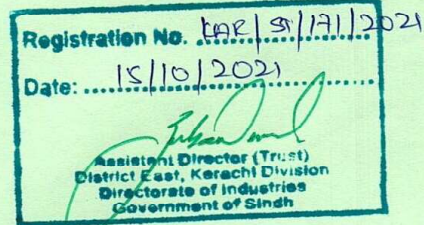 Registration No. KAR/ST/171/2021
Date: 15/10/2021
Assistant Director (Trust)
District East, Karachi Division
Directorate of Industries
Government of Sindh